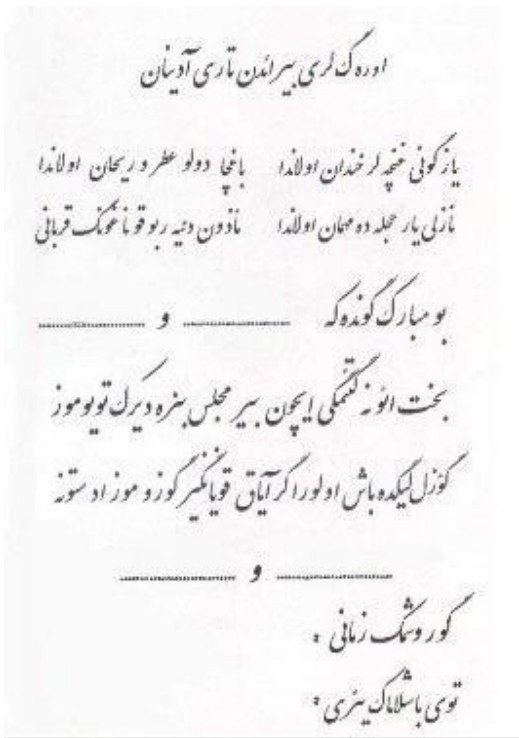 اوره ک لری بیرائدن تاری آدینان
یاز گونی غنچه لر خندان اولاندا باغچا دولو عطر و ریحان اولاندا
نازلی یار حجله ده مهمان اولاندا ماذون دئیه ربو قوناغونک قربانی
بو مبارک گونده که ........................ و ........................
بخت ائو نه گتمگی ایچون بیر مجلس بزه دیرک تویوموز
گؤزل لیکده باش اولور اگر آیاق قویانگیر گوزوموز اوستونه
........................ و ........................
گوروشمک زمانی :
توی باشلاماک یئری :